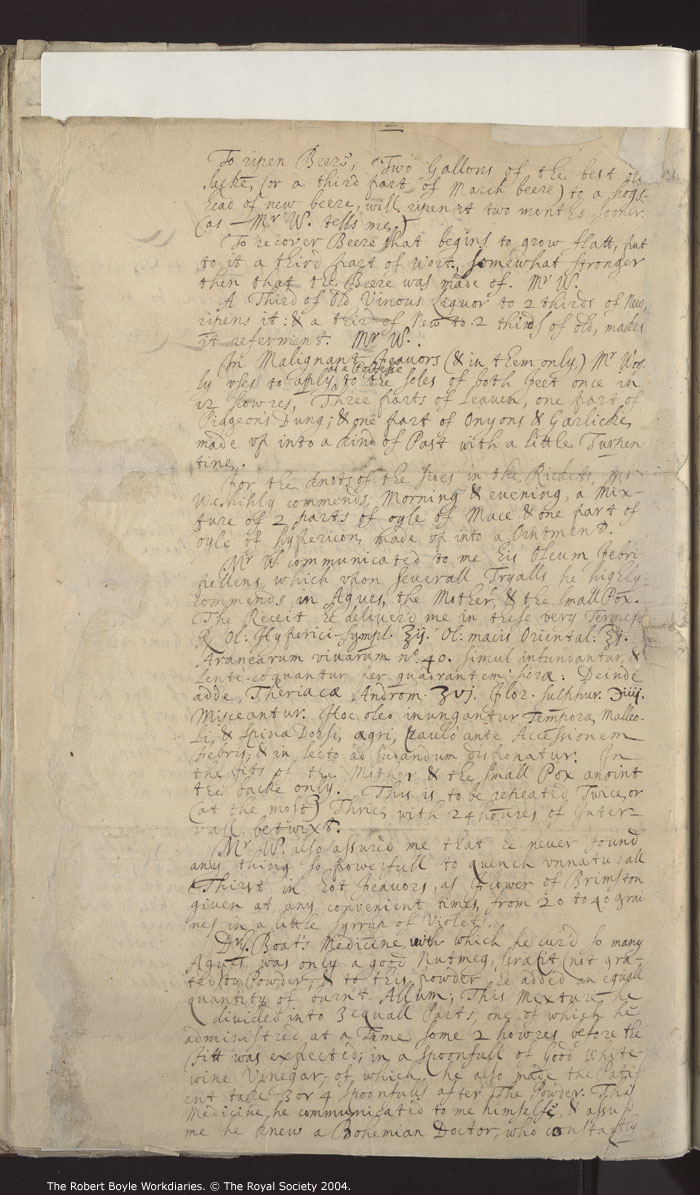 To ripen Beere, Two Gallons of the best old
sacke, (or a third part of March beere) to a hogs-
head of new beere, will ripen it two months sooner.
(as Mr W. tells me.)
To recover Beere that begins to grow flatt, put
to it a third part of wort, somewhat stronger
then that the Beere was made of. Mr W.
A Third of old Vinous Liquor to 2 thirds of New,
ripens it: & a third of New to 2 thirds of old, makes
it referment. Mr W.
In Malignant Feavors (& in them only) Mr Wors-
ly vses to apply, as a Pultesse to the soles of both feet once in
12 howres, Three parts of Leaven, one part of
Pidgeons Dung; & one part of Onyons & Garlicke,
made vp into a kind of Past with a little Turpen-
tine.
For the knots of the Joes in the Rickets, Mr
W. highly commends, Morning & evening, a Mix-
ture of 2 parts of oyle of Mace & one part of
oyle of hypericon, made vp into a Ointment.
Mr W. communicated to me his Oleum Febri
pellens, which vpon severall Tryalls he highly
commends in Agues, the Mother, & the small Pox.
The Receit he deliver'd me in these very Termes.
℞ Ol: Hyperici simpl. ʒij. Ol: macis Oriental. ʒj.
Aranearum vivarum no. 40. simul infundantur, &
Lente coquantur per quadrantem horæ: Deinde
adde, Theriacæ Androm. ʒvj. Flor. sulphur. ʒiiij.
Misceantur. Hoc oleo inungantur Tempora, Malleo-
li, & spina Dorsi, ægri, paulo ante Accessionem
Febris; & in lecto ad sudandum disponatur. In
the fits of the Mother & the small Pox anoint
the backe only. This is to be repeated Twice, or
(at the most) Thrice, with 24 houres of Inter-
vall betwixt.
Mr W. also assur'd me that he never found
any thing so powerfull to quench vnnaturall
Thirst in hot feavors, as Flower of Brimston
given at any convenient times, from 20 to 40 grai
nes in a little syrrup of Violets.
Dr Boat's Medicine with which he cur'd so many
Agues was only a good Nutmeg, scrap't (not gra-
ted) to Powder, & to this powder, he added an equall
quantity of burnt Allum; This Mixture he
divided into 3 equall Parts, one of which he
administred at a Time some 2 howres before the
Fitt was expected; in a spoonfull of good White-
wine Vinegar; of which he also made the Pati-
ent take 3 or 4 spoonfulls after The Powder. This
Medicine, he communicated to me himselfe, & assur'd
me he knew a Bohemian Doctor, who constantly